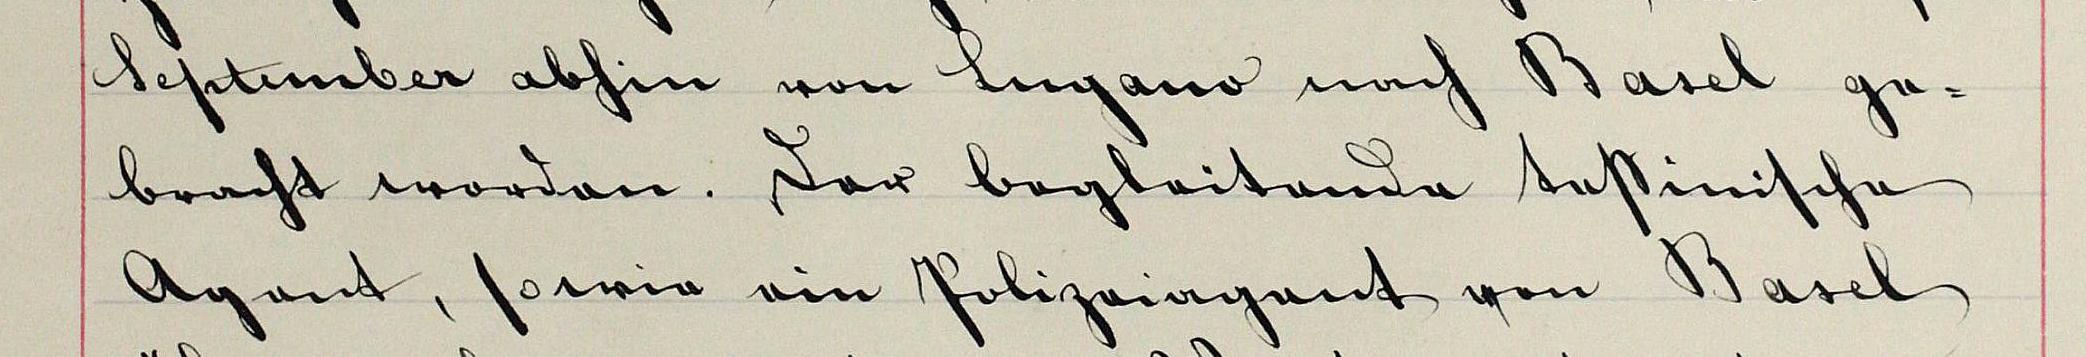 September abhin von Lugano nach Basel ge=
bracht worden. Der begleitende tessinische
Agent, sowie ein Polizeiagent von Basel